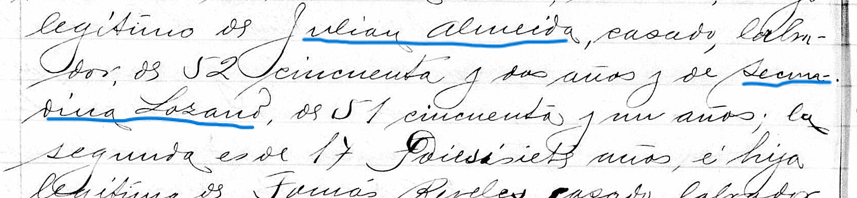 legitimo de Julian Almeida, casado, labra-
dor, de 52 cincuenta y dos años y de Secun-
dina Lozano, de 51 cincuenta y un años; la
segunda es de 17 diesisiete años, é hija
legitima de Tomás casado labrador